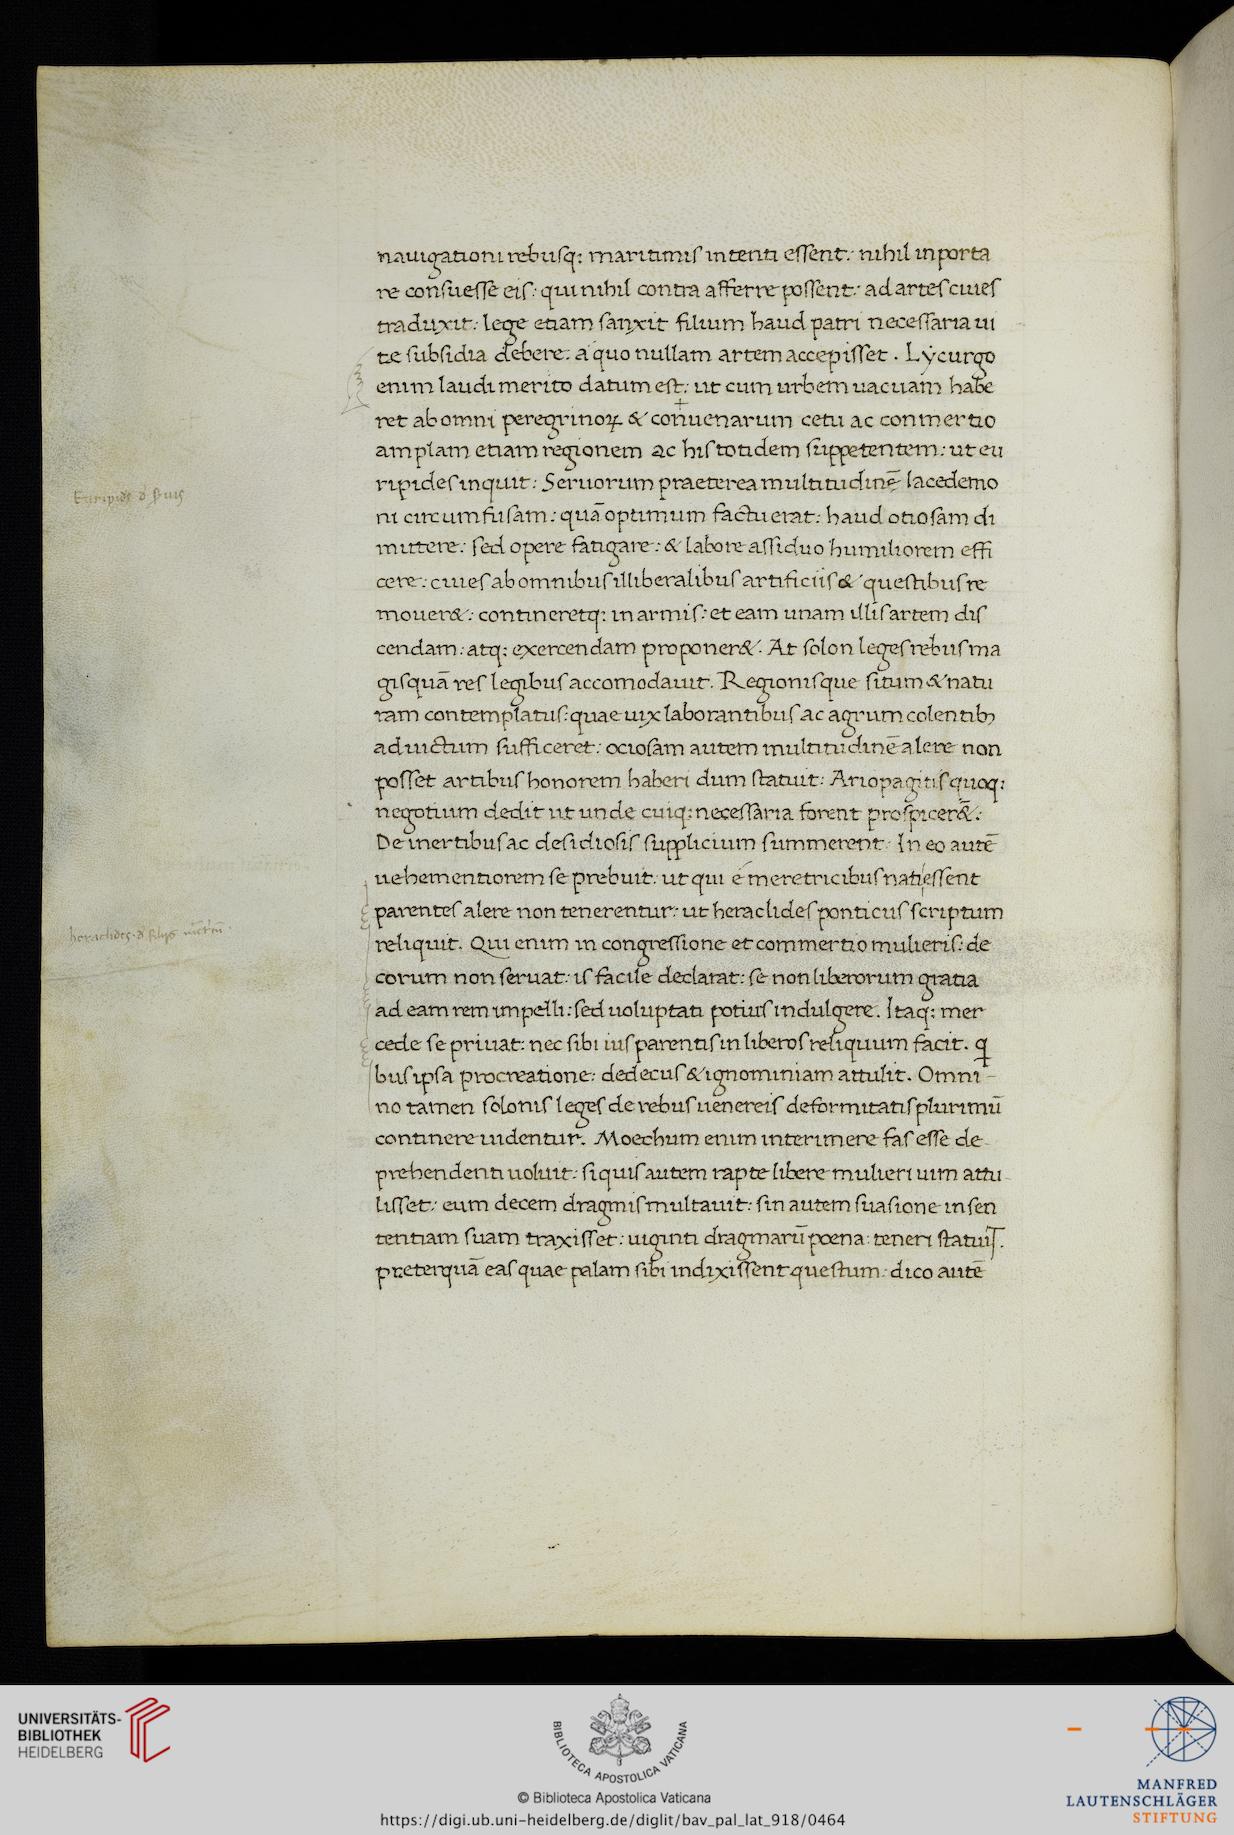 nauigationi rebusq: maritimis intenti essent: nihil inporta
re consuesse eis: qui nihil contra afferre possent: ad artes ciues
traduxit: lege etiam sanxit filium haud patri necessaria ui
te subsidia debere: a quo nullam artem accepisset. Lycurgo
enim laudi merito datum est: ut cum urbem uacuam habe
ret ab omni peregrinoꝝ & conuenarum cetu ac conmertio
amplam etiam regionem ac his totidem suppetentem: ut eu
ripides inquit: Seruorum praeterea multitudinē lacedemo
ni circumfusam: quā optimum factu erat: haud otiosam di
mittere: sed opere fatigare: & labore assiduo humiliorem effi
cere: ciues ab omnibus illiberalibus artificiis & questibus re
mouer&: contineretq: in armis: et eam unam illis artem dis
cendam: atq: exercendam proponer&. At solon leges rebus ma
gis quā res legibus accomodauit. Regionisque situm & natu
ram contemplatus: quae uix laborantibus ac agrum colentibꝫ
ad uictum sufficeret: ociosam autem multitudinē alere non
posset artibus honorem haberi dum statuit: Ariopagitis quoq:
negotium dedit ut unde cuiq: necessaria forent prospicer&:
De inertibus ac desidiosis supplicium summerent: In eo autē
uehementiorem se prebuit: ut qui é meretricibus nati essent
parentes alere non tenerentur: ut heraclides ponticus scriptum
reliquit. Qui enim in congressione et commertio mulieris: de
corum non seruat: is facile declarat: se non liberorum gratia
ad eam rem impelli: sed uoluptati potius indulgere. Itaq: mer
cede se priuat: nec sibi ius parentis in liberos reliquum facit. q
bus ipsa procreatione: dedecus & ignominiam attulit. Omni-
no tamen solonis leges de rebus uenereis deformitatis plurimū
continere uidentur. Moechum enim interimere fas esse de-
prehendenti uoluit: si quis autem rapte libere mulieri uim attu-
lisset: eum decem dragmis multauit: sin autem suasione in sen
tentiam suam traxisset: uiginti dragmarū poena: teneri statuit.
preterquā eas quae palam sibi indixissent questum: dico autē
Euripides d̄ suis
heraclides
UNIVERSITÄTS-
BIBLIOTHEK
HEIDELBERG
BIBLIOTECA APOSTOLICA VATICANA
© Biblioteca Apostolica Vaticana
https://digi.ub.uni-heidelberg.de/diglit/bav_pal_lat_918/0464
MANFRED
LAUTENSCHLÄGER
STIFTUNG